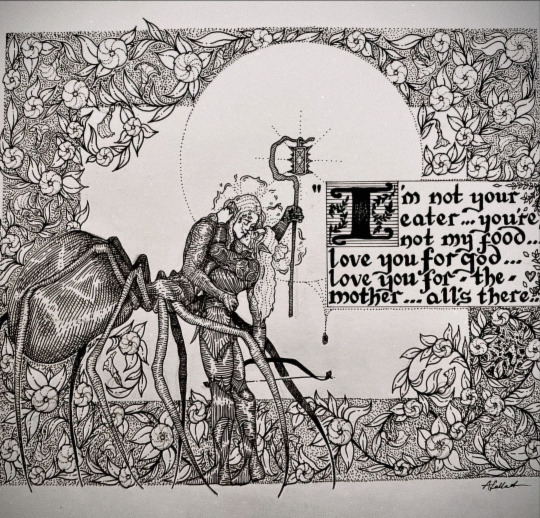 "I'm not your
eater... you're
not my food...
love you for god...
love you for - the -
mother... all's there..